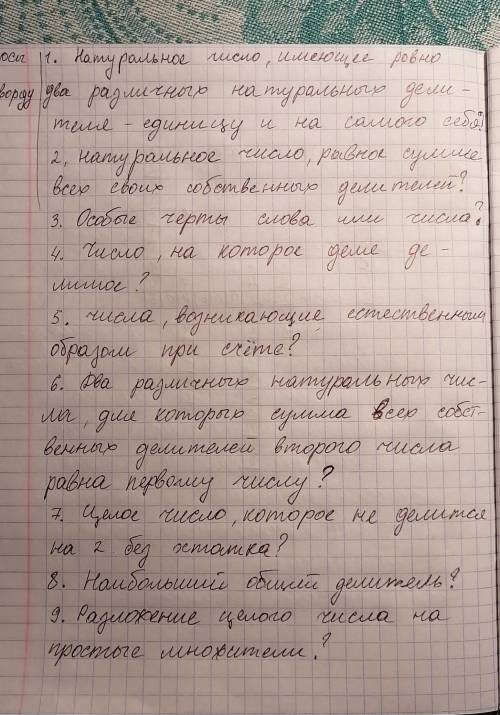 осы 1. Натуральное число, имеющее ровно
ворду два различных натуральных дели-
теля - единицу и на самого себя?
2, натуральное число, рывное сумме
всех своих собственных делителей?
3. Особые черты слова или числа?
4. Число, на которое деме де-
лимое?
5. числа, возникающие естественным
образом при счёте?
6. Два различных натуральных чис-
ла, для которых сумма всех собст-
венных делителей второго числа
равна первому числу?
7. Целое число, которое не делится
на 2 без остатка?
8. Наибольший общий делитель?
9. Разложение целого числа на
простые множители?